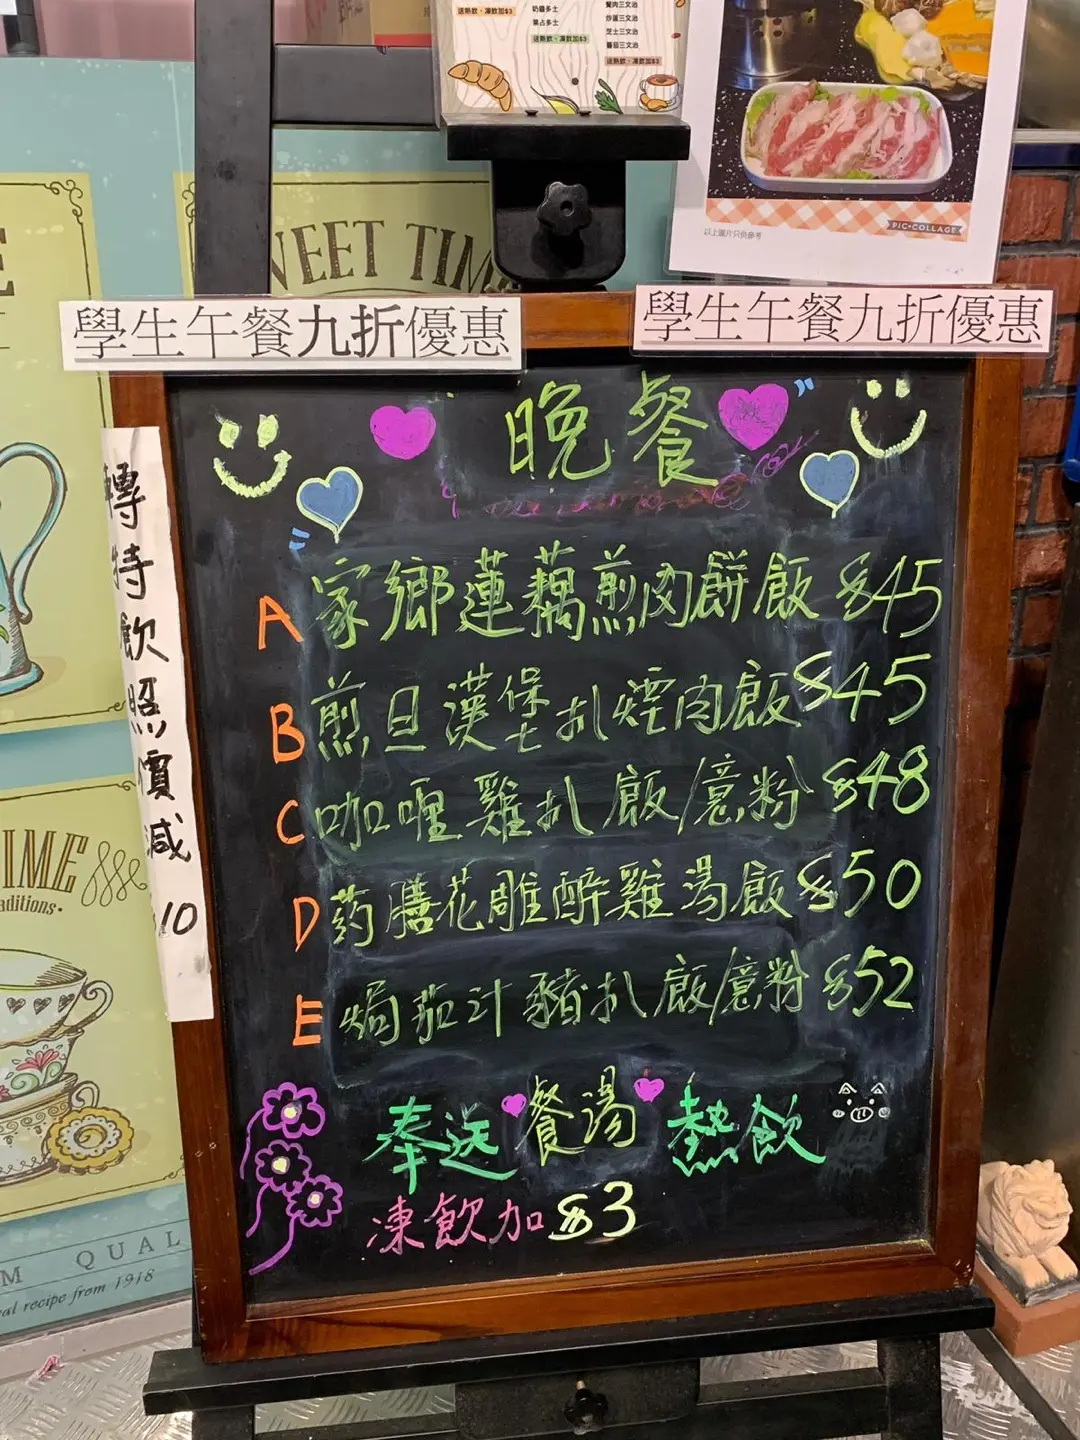 送熱飲，凍飲加$3
奶醬多士
果占多士
送熱飲，凍飲加$3
餐肉三文治
炒蛋三文治
芝士三文治
蕃茄三文治
送熱飲，凍飲加$3
PIC•COLLAGE
以上圖片只供參考
SWEET TIM
學生午餐九折優惠
學生午餐九折優惠
轉特飲照價減
10
晚餐
A 家鄉蓮藕煎肉餅飯 $45
B 煎旦漢堡扒煙肉飯 $45
C 咖喱雞扒飯/意粉 $48
D 药膳花雕醉雞湯飯 $50
E 焗茄汁豬扒飯/意粉 $52
奉送餐湯熱飲
凍飲加$3
TIME
aditions•
M QUAL
al recipe from 1918